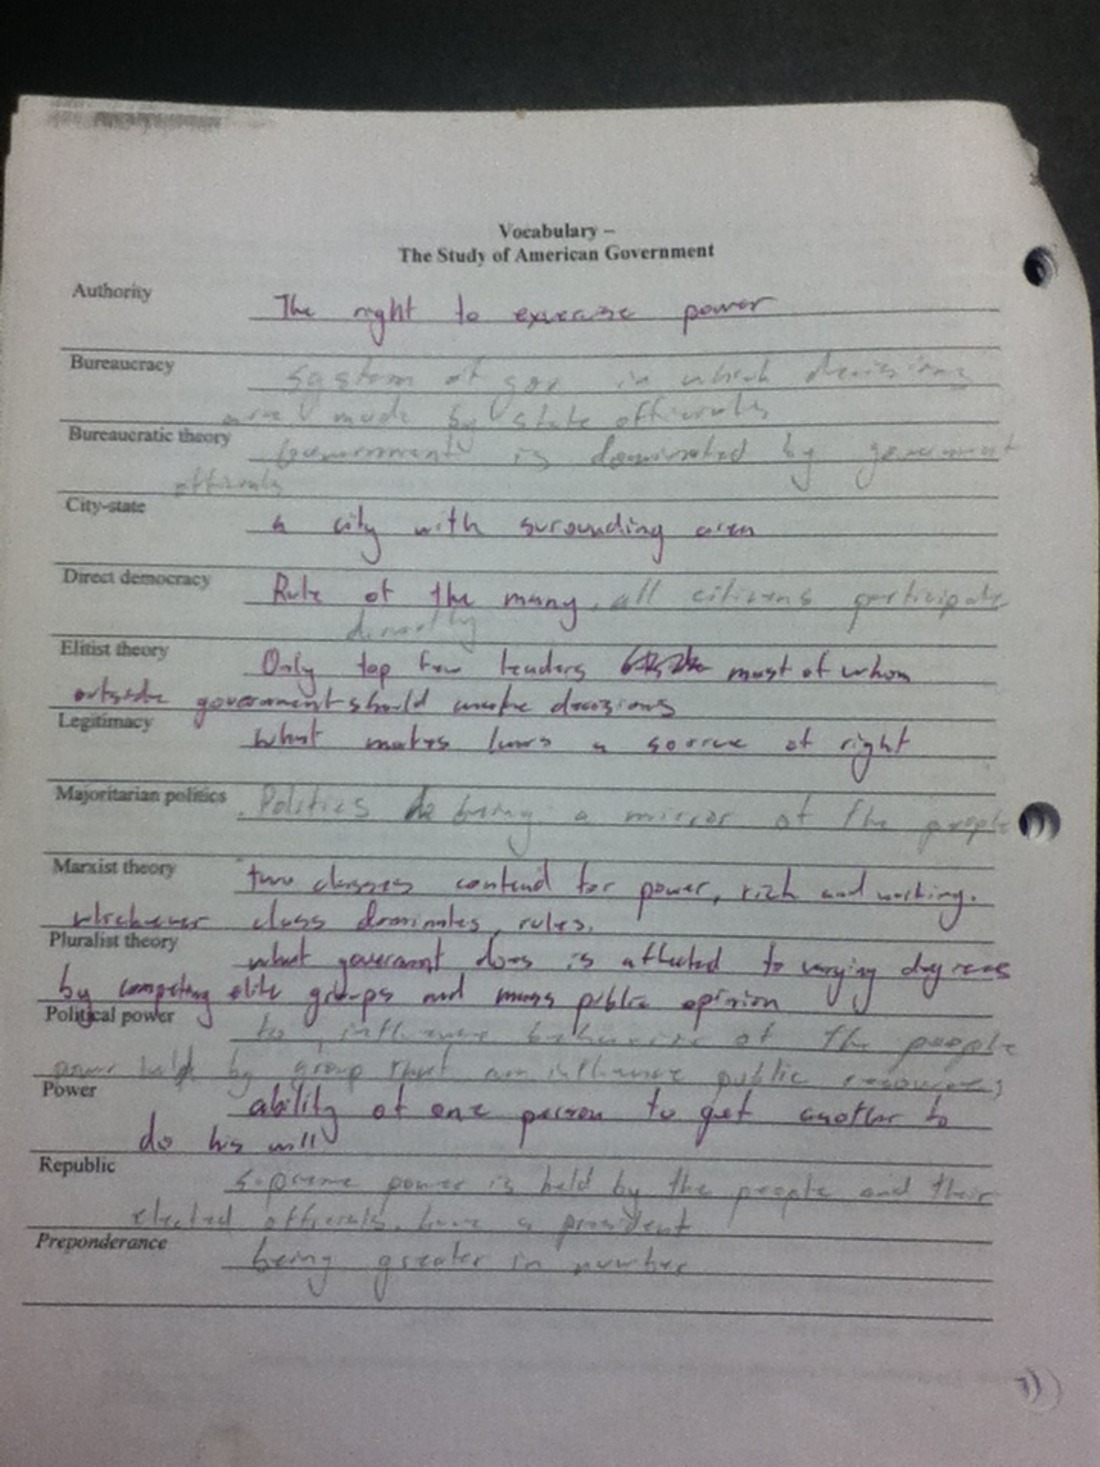 Vocabulary –
The Study of American Government
Authority
The right to exercise power
Bureaucracy
System of gov in which decisions
are made by state officials
Bureaucratic theory
Government is dominated by government
officials
City-state
a city with surounding area
Direct democracy
Rule of the many, all citizens participate
directly
Elitist theory
Only top few leaders most of whom
outside government should make decisions
Legitimacy
What makes laws a source of right
Majoritarian politics
Politics being a mirror of the people
Marxist theory
two classes contend for power, rich and working.
whichever class dominates, rules.
Pluralist theory
what goverment does is affected to varying degrees
by competing elite groups and mass public opinion
Political power
to influence behavior of the people
power held by group that influence public resources
Power
ability of one person to get another to
do his will
Republic
Supreme power is held by the people and their
elected officials. have a president
Preponderance
being greater in number